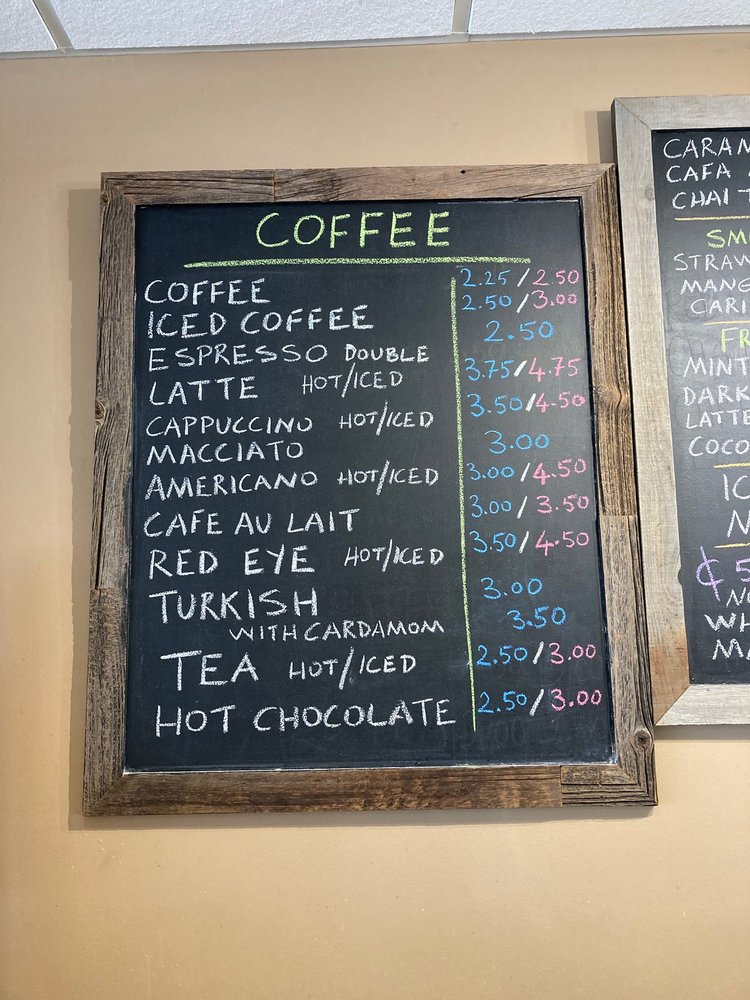 COFFEE
COFFEE 2.25/2.50
ICED COFFEE 2.50/3.00
ESPRESSO DOUBLE 2.50
LATTE HOT/ICED 3.75/4.75
CAPPUCCINO HOT/ICED 3.50/4.50
MACCIATO 3.00
AMERICANO HOT/ICED 3.00/4.50
CAFE AU LAIT 3.00/3.50
RED EYE HOT/ICED 3.50/4.50
TURKISH 3.00
WITH CARDAMOM 3.50
TEA HOT/ICED 2.50/3.00
HOT CHOCOLATE 2.50/3.00
CARAM
CAFA
CHAI
SM
STRAW
MANG
CARI
FR
MINT
DARK
LATTE
COCO
IC
N
¢5
NO
WH
MA